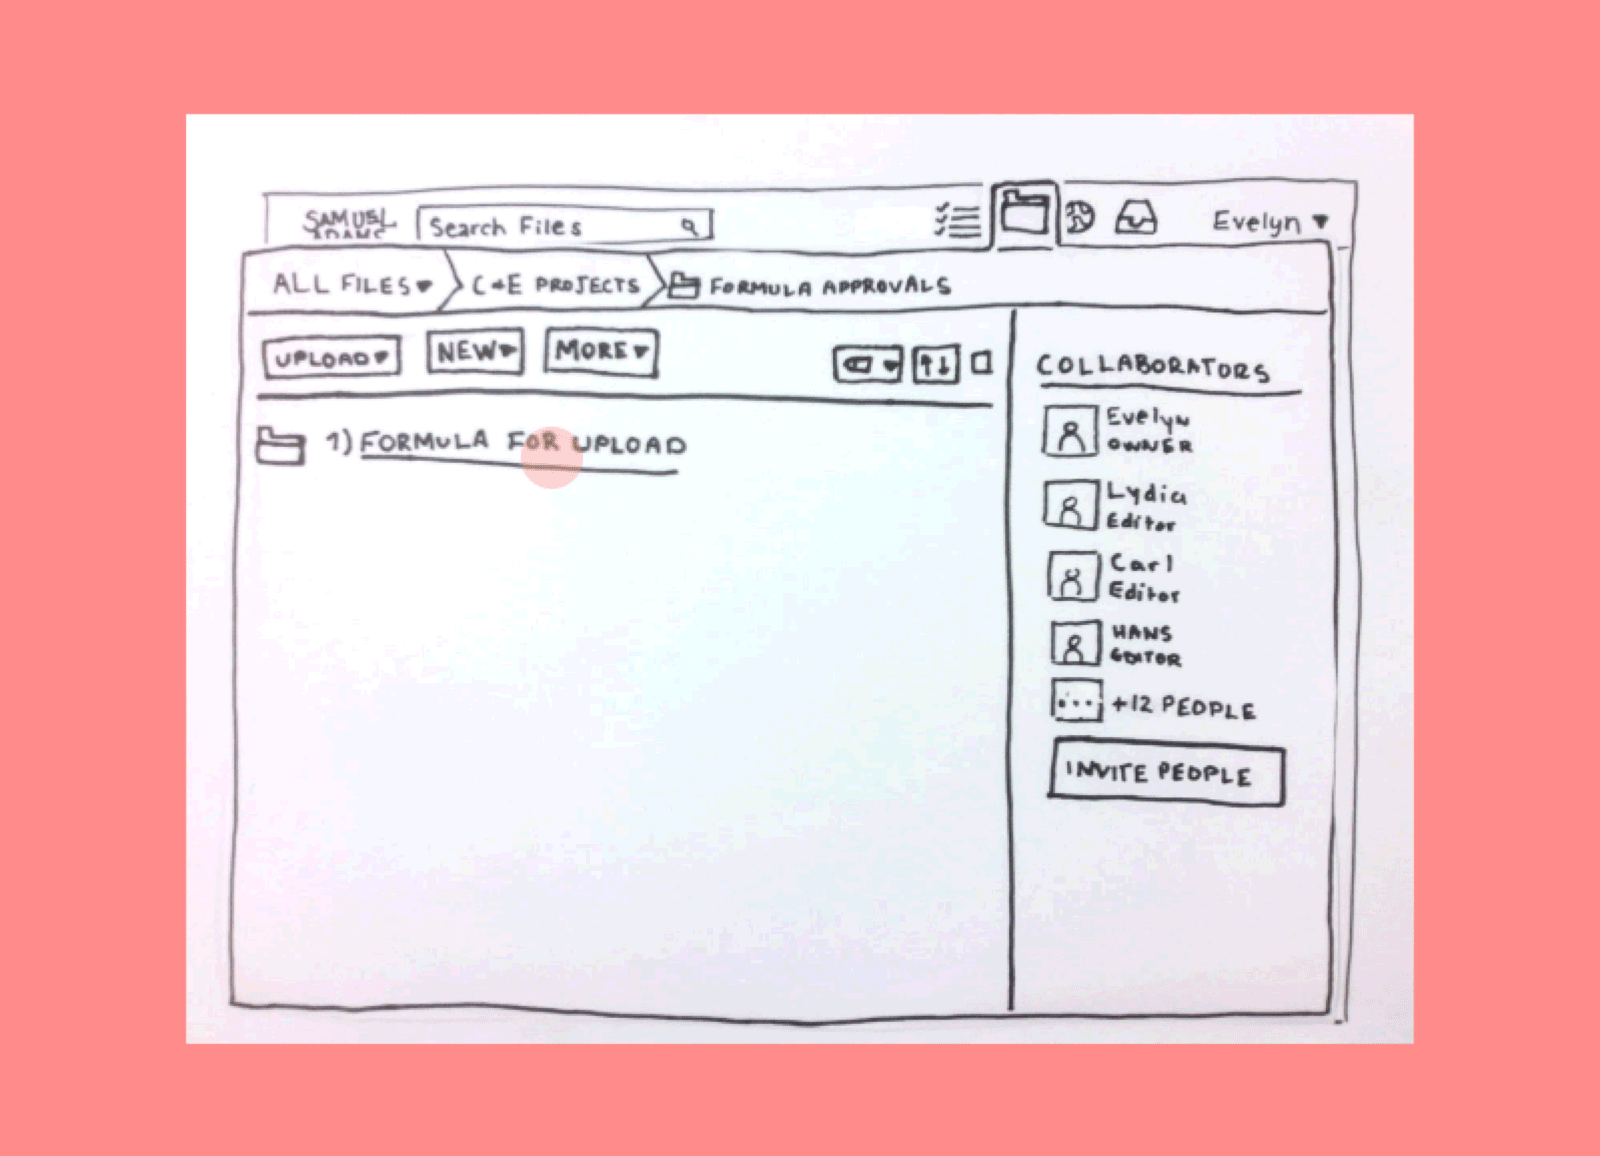 SAMUEL
ADAMS
Search Files
Evelyn
ALL FILES
C&E PROJECTS
FORMULA APPROVALS
UPLOAD
NEW
MORE
COLLABORATORS
1) FORMULA FOR UPLOAD
Evelyn
OWNER
Lydia
Editor
Carl
Editor
HANS
EDITOR
+12 PEOPLE
INVITE PEOPLE